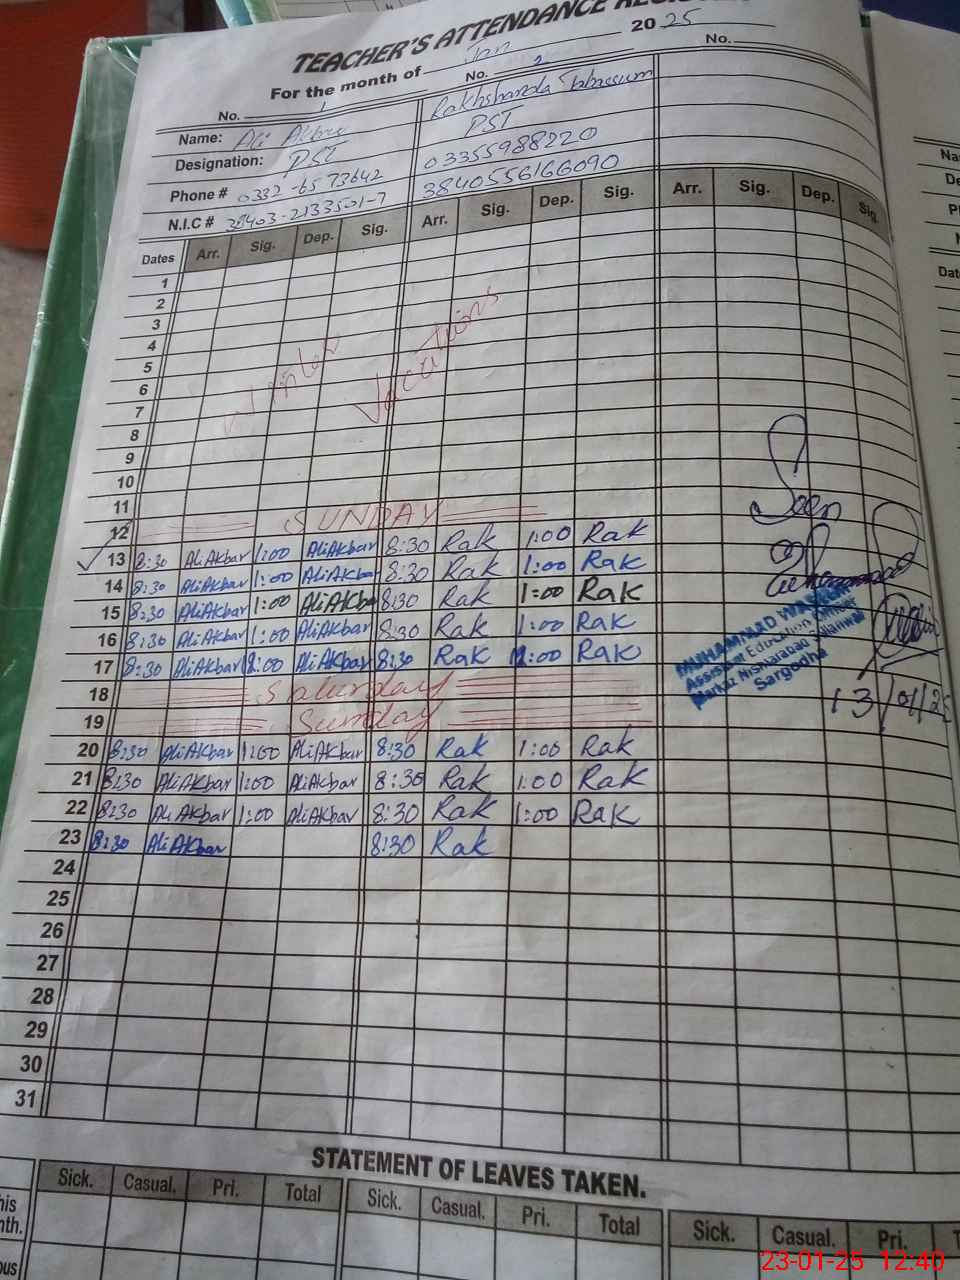 TEACHER'S ATTENDANCE
For the month of Jan 2025
No. 1 No. 2 No.
Name: Ali Akbar Rakhshanda Tabassum
Designation: PST PST
Phone # 0332-6573642 03355988220
N.I.C # 38403-2133501-7 3840556166090
Dates Arr. Sig. Dep. Sig. Arr. Sig. Dep. Sig. Arr. Sig. Dep. Sig.
1
2
3
4
5
6
7
Winter Vacations
8
9
10
11
12 SUNDAY
13 8:30 AliAkbar 1:00 AliAkbar 8:30 Rak 1:00 Rak
14 8:30 AliAkbar 1:00 AliAkbar 8:30 Rak 1:00 Rak
15 8:30 AliAkbar 1:00 AliAkbar 8:30 Rak 1:00 Rak
16 8:30 AliAkbar 1:00 AliAkbar 8:30 Rak 1:00 Rak
17 8:30 AliAkbar 12:00 AliAkbar 8:30 Rak 12:00 Rak
18 Saturday
19 Sunday
20 8:30 AliAkbar 1:00 AliAkbar 8:30 Rak 1:00 Rak
21 8:30 AliAkbar 1:00 AliAkbar 8:30 Rak 1:00 Rak
22 8:30 AliAkbar 1:00 AliAkbar 8:30 Rak 1:00 Rak
23 8:30 AliAkbar 8:30 Rak
24
25
26
27
28
29
30
31
Seen
MUHAMMAD
Assistant Education Officer
Markaz Nisharabad Silanwali
Sargodha
13/01/25
STATEMENT OF LEAVES TAKEN.
Sick. Casual. Pri. Total Sick. Casual. Pri. Total Sick. Casual. Pri.
23-01-25 12:40